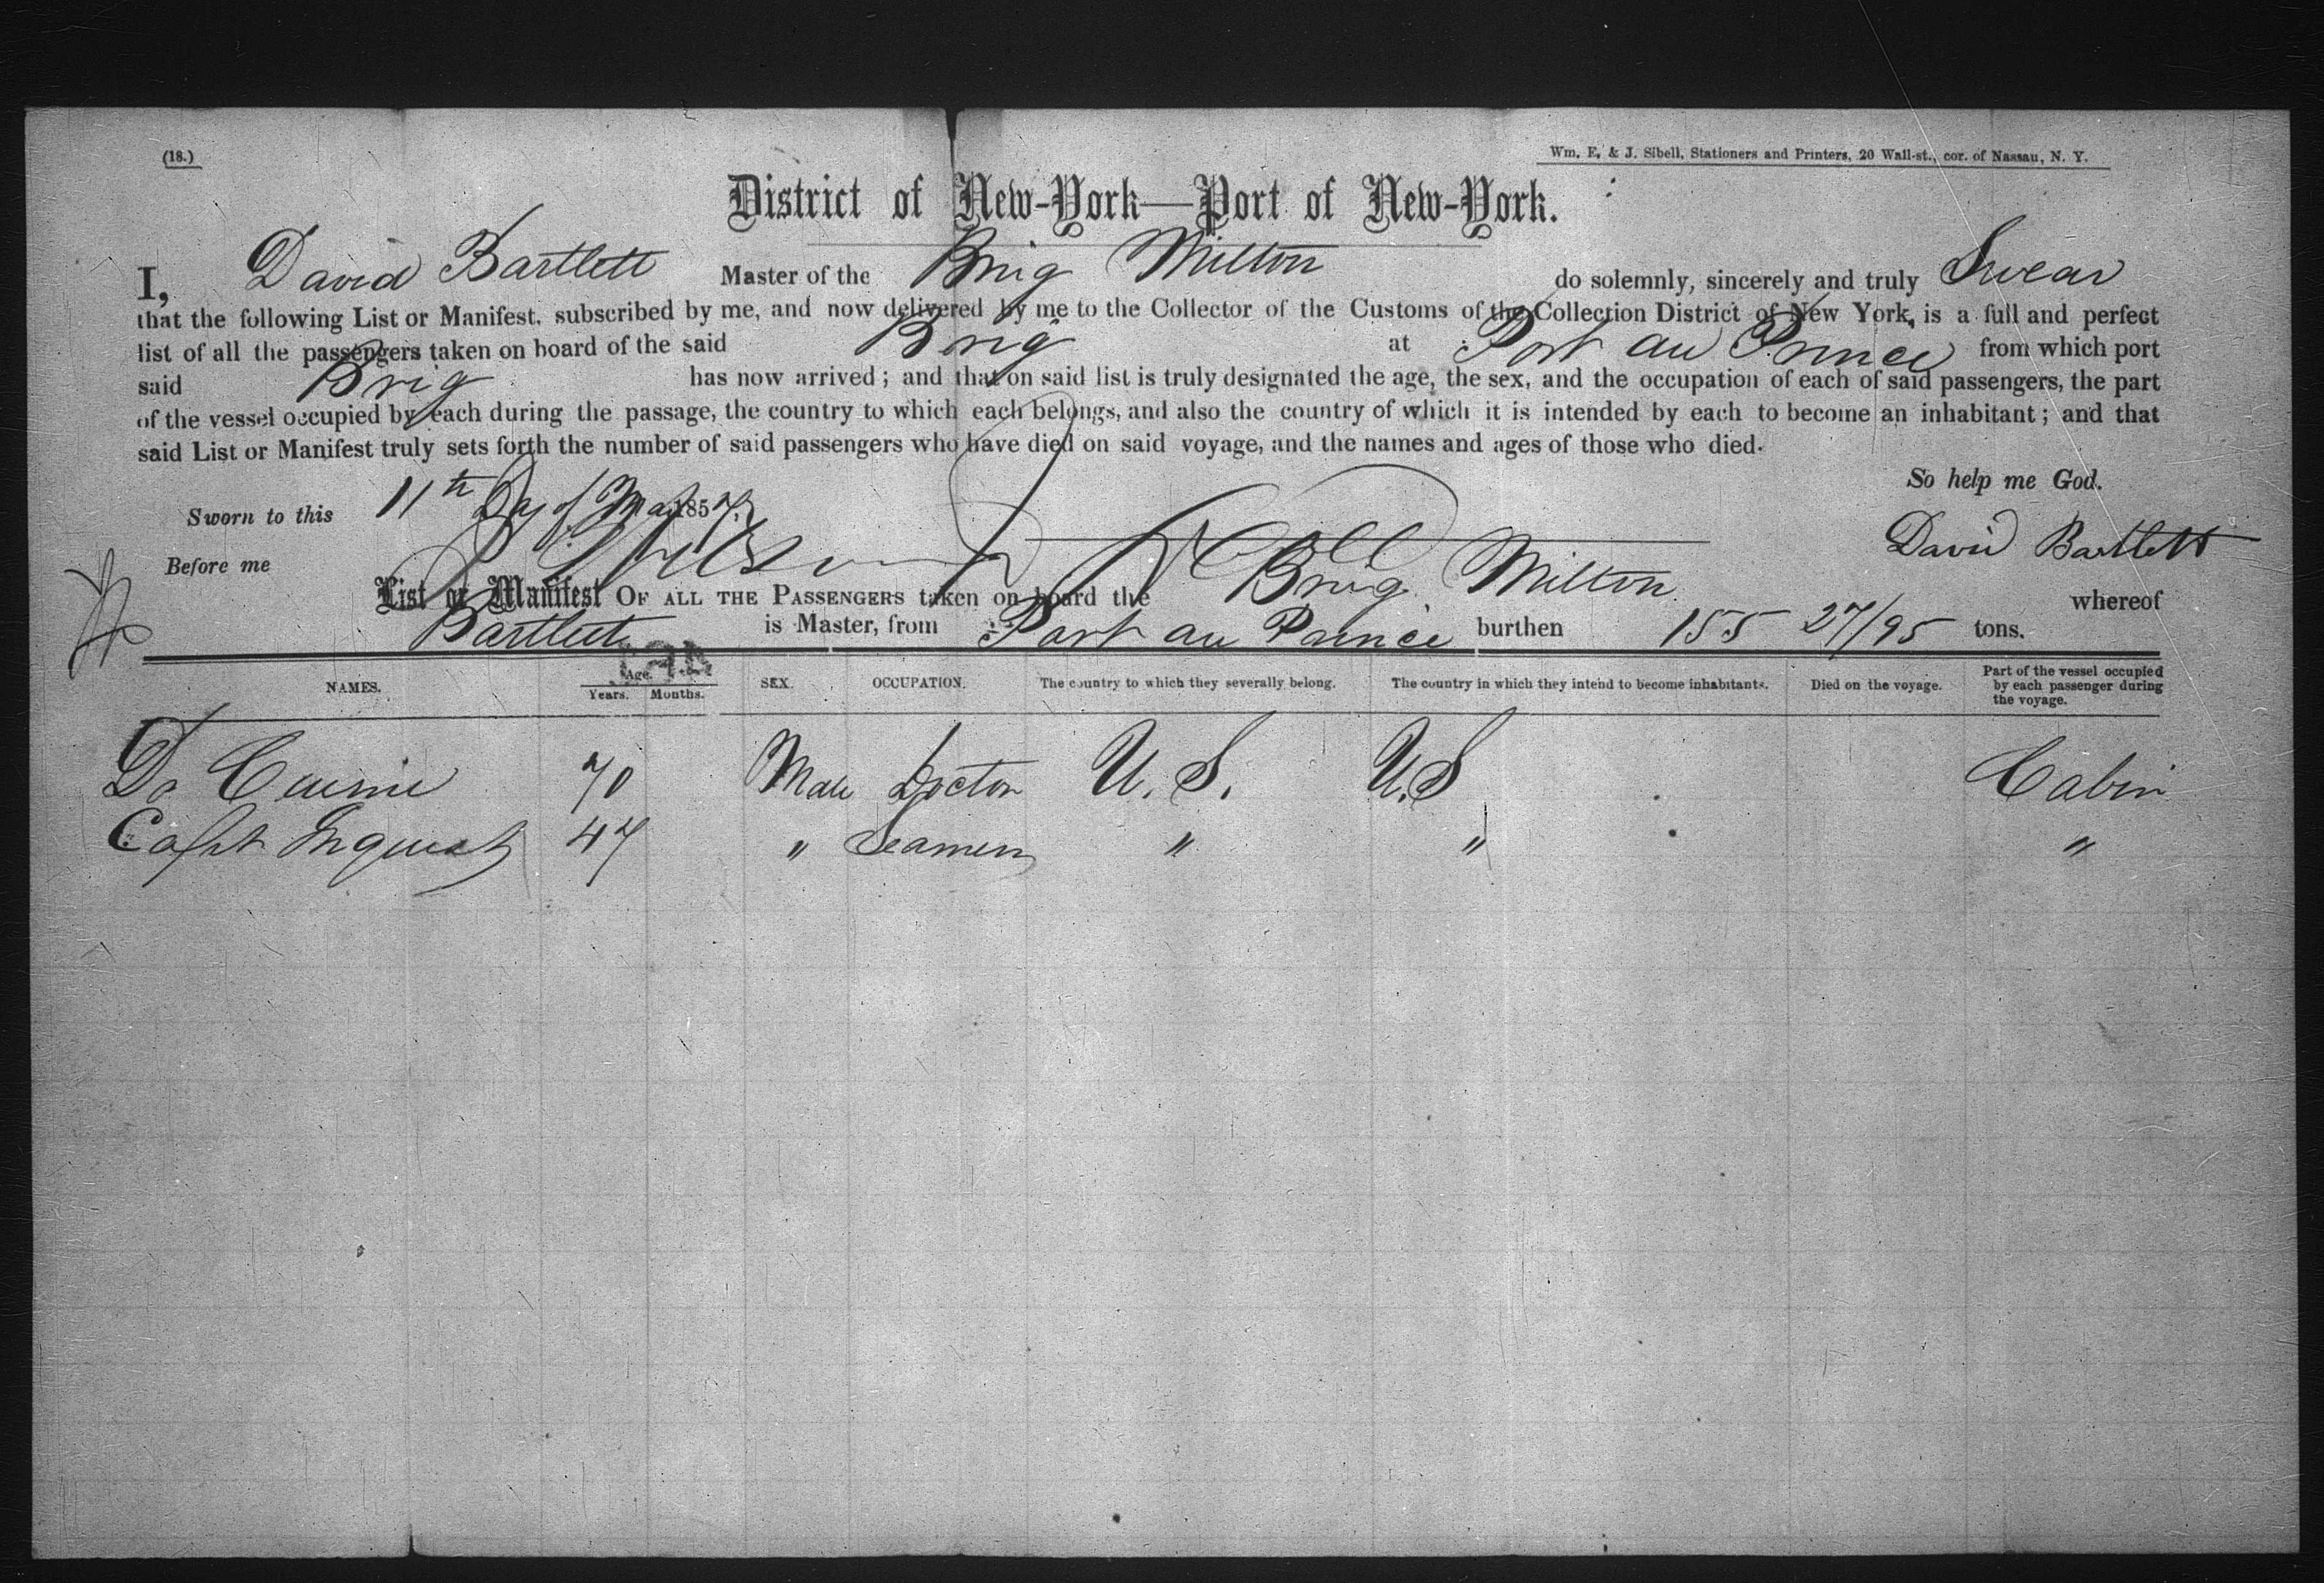 (18.)
Wm. E. & J. Sibell, Stationers and Printers, 20 Wall-st., cor. of Nassau, N. Y.
District of New-York—Port of New-York.
I, David Bartlett Master of the Brig Milton do solemnly, sincerely and truly Swear
that the following List or Manifest, subscribed by me, and now delivered by me to the Collector of the Customs of the Collection District of New York, is a full and perfect
list of all the passengers taken on board of the said Brig at Port au Prince from which port
said Brig has now arrived; and that on said list is truly designated the age, the sex, and the occupation of each of said passengers, the part
of the vessel occupied by each during the passage, the country to which each belongs, and also the country of which it is intended by each to become an inhabitant; and that
said List or Manifest truly sets forth the number of said passengers who have died on said voyage, and the names and ages of those who died.
So help me God.
Sworn to this 11th Day of May 1857
David Bartlett
Before me
List or Manifest OF ALL THE PASSENGERS taken on board the Brig Milton whereof
Bartlett is Master, from Port au Prince burthen 155 27/95 tons.
NAMES. Age. Years. Months. SEX. OCCUPATION. The country to which they severally belong. The country in which they intend to become inhabitants. Died on the voyage. Part of the vessel occupied by each passenger during the voyage.
70 Male Doctor U. S. U.S Cabin
Capt 47 " Seamen " " "